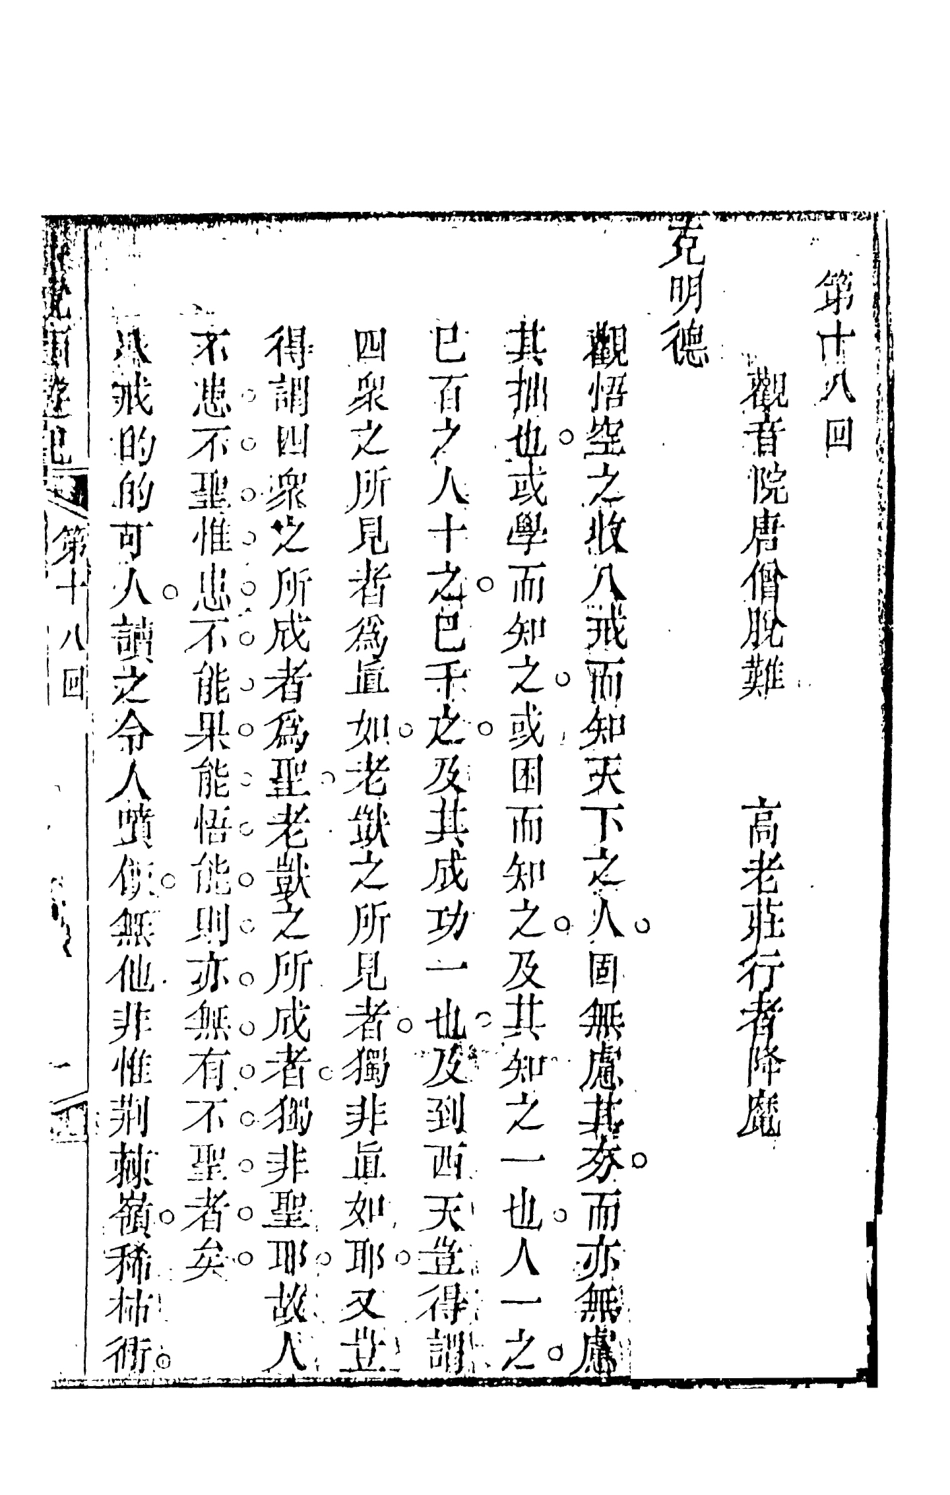 第十八回
觀音院唐僧脫難　高老莊行者降魔
克明德
觀悟空之收八戒而知天下之人固無慮其夯而亦無慮
其拙也或學而知之或困而知之及其知之一也人一之
巳百之人十之巳千之及其成功一也及到西天豈得謂
四衆之所見者爲眞如老獃之所見者獨非眞如耶又豈
得謂四衆之所成者爲聖老獃之所成者獨非聖耶故人
不患不聖惟患不能果能悟能則亦無有不聖者矣
八戒的的可人讀之令人噴飯無他非惟荆棘嶺稀柿衕
西遊記
第十八回
一